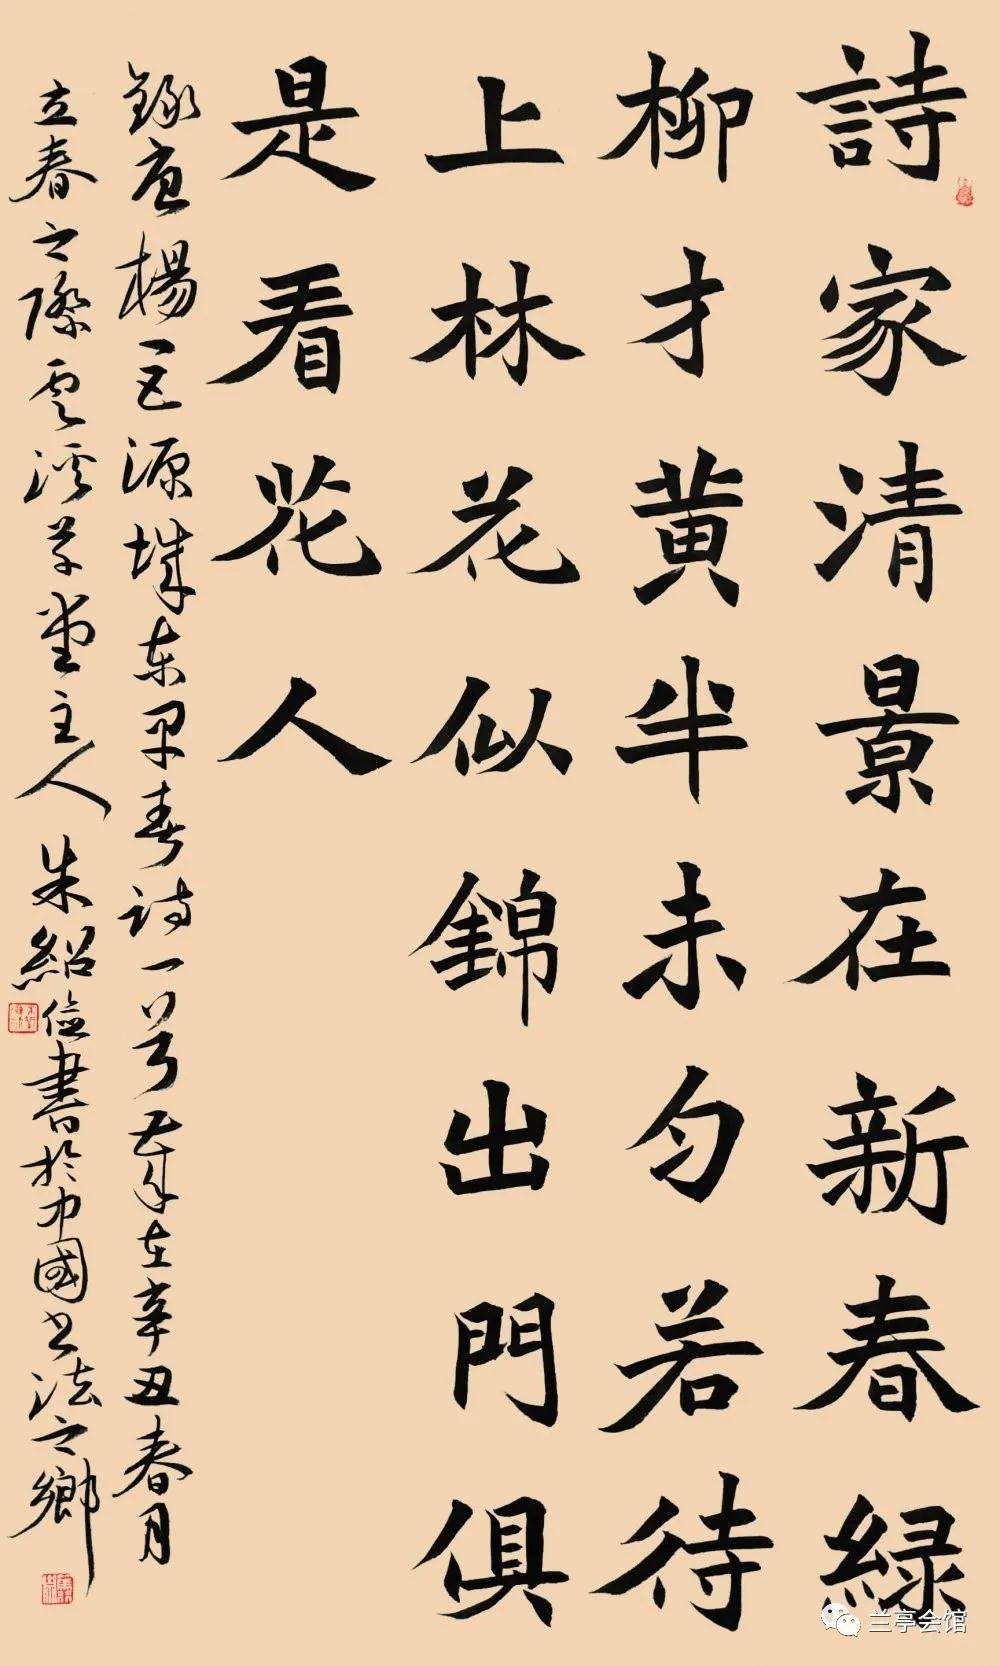 詩家清景在新春緑
柳才黄半未匀若待
上林花似錦出門俱
是看花人
録唐楊巨源城东早春诗一首歲在辛丑春月
立春之際雲溪草堂主人朱紹儉書於中國书法之鄉
兰亭会馆